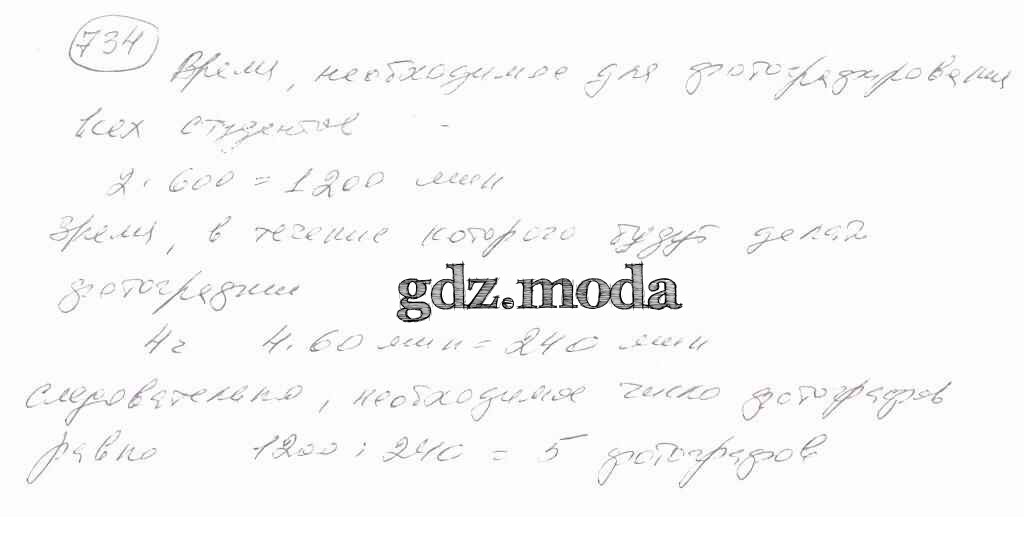 734
Время, необходимое для фотографирования
всех студентов -
2 · 600 = 1200 мин
Время, в течение которого будут делать
фотографии
gdz.moda
4 ч 4 · 60 мин = 240 мин
следовательно, необходимое число фотографов
равно 1200 : 240 = 5 фотографов